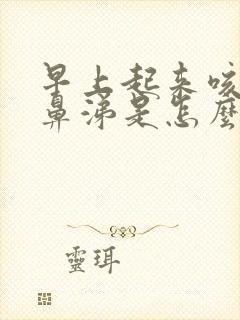 早上起来咳
鼻涕是怎麽
靈珥